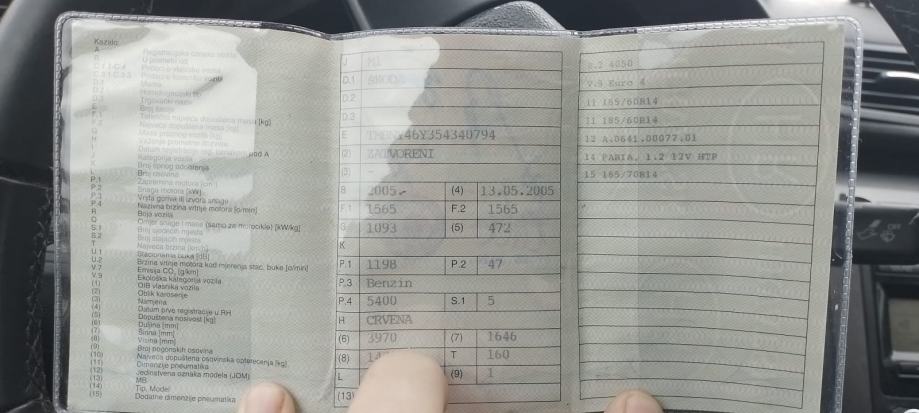 Kazalo:
A Registracijska oznaka vozila
B
C.1.1-C.4
C.3.1-C.3.3
D.1 Marka
D.2
D.3
E Broj šasije
F.1 Tehnička najveća dopuštena masa [kg]
F.2 Najveća dopuštena masa [kg]
G Masa praznog vozila [kg]
H Važenje prometne dozvole
I
J Kategorija vozila
K Broj tipnog odobrenja
L Broj osovina
P.1 Zapremina motora [cm³]
P.2 Snaga motora [kW]
P.3 Vrsta goriva ili izvora snage
P.4 Nazivna brzina vrtnje motora [o/min]
R Boja vozila
Q Omjer snage i mase (samo za motocikle) [kW/kg]
S.1 Broj sjedećih mjesta
S.2 Broj stajaćih mjesta
T Najveća brzina [km/h]
U.1 Stacionarna buka [dB]
U.2 Brzina vrtnje motora kod mjerenja stac. buke [o/min]
V.7 Emisija CO₂ [g/km]
V.9 Ekološka kategorija vozila
(1) OIB vlasnika vozila
(2) Oblik karoserije
(3) Namjena
(4) Datum prve registracije u RH
(5) Dopuštena nosivost [kg]
(6) Duljina [mm]
(7) Širina [mm]
(8) Visina [mm]
(9) Broj pogonskih osovina
(10) Najveća dopuštena osovinska opterećenja [kg]
(11) Dimenzije pneumatika
(12) Jedinstvena oznaka modela (JOM)
(13) MB
(14) Tip, Model
(15) Dodatne dimenzije pneumatika
J M1
D.1 ŠKODA
D.2
D.3
E 46Y354340794
(2) ZATVORENI
(3) -
B 2005.- (4) 13.05.2005
F.1 1565 F.2 1565
G 1093 (5) 472
K
P.1 1198 P.2 47
P.3 Benzin
P.4 5400 S.1 5
H CRVENA
(6) 3970 (7) 1646
(8) T 160
L (9) 1
(13)
4050
V.9 Euro 4
11 165/60R14
11 185/60R14
12 A.0641.00077.01
14 1.2 12V HTP
15 165/70R14